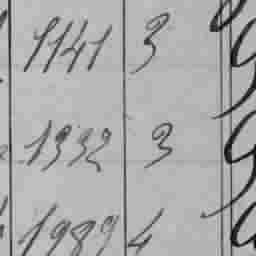 1141 3
1332 3
1989 4